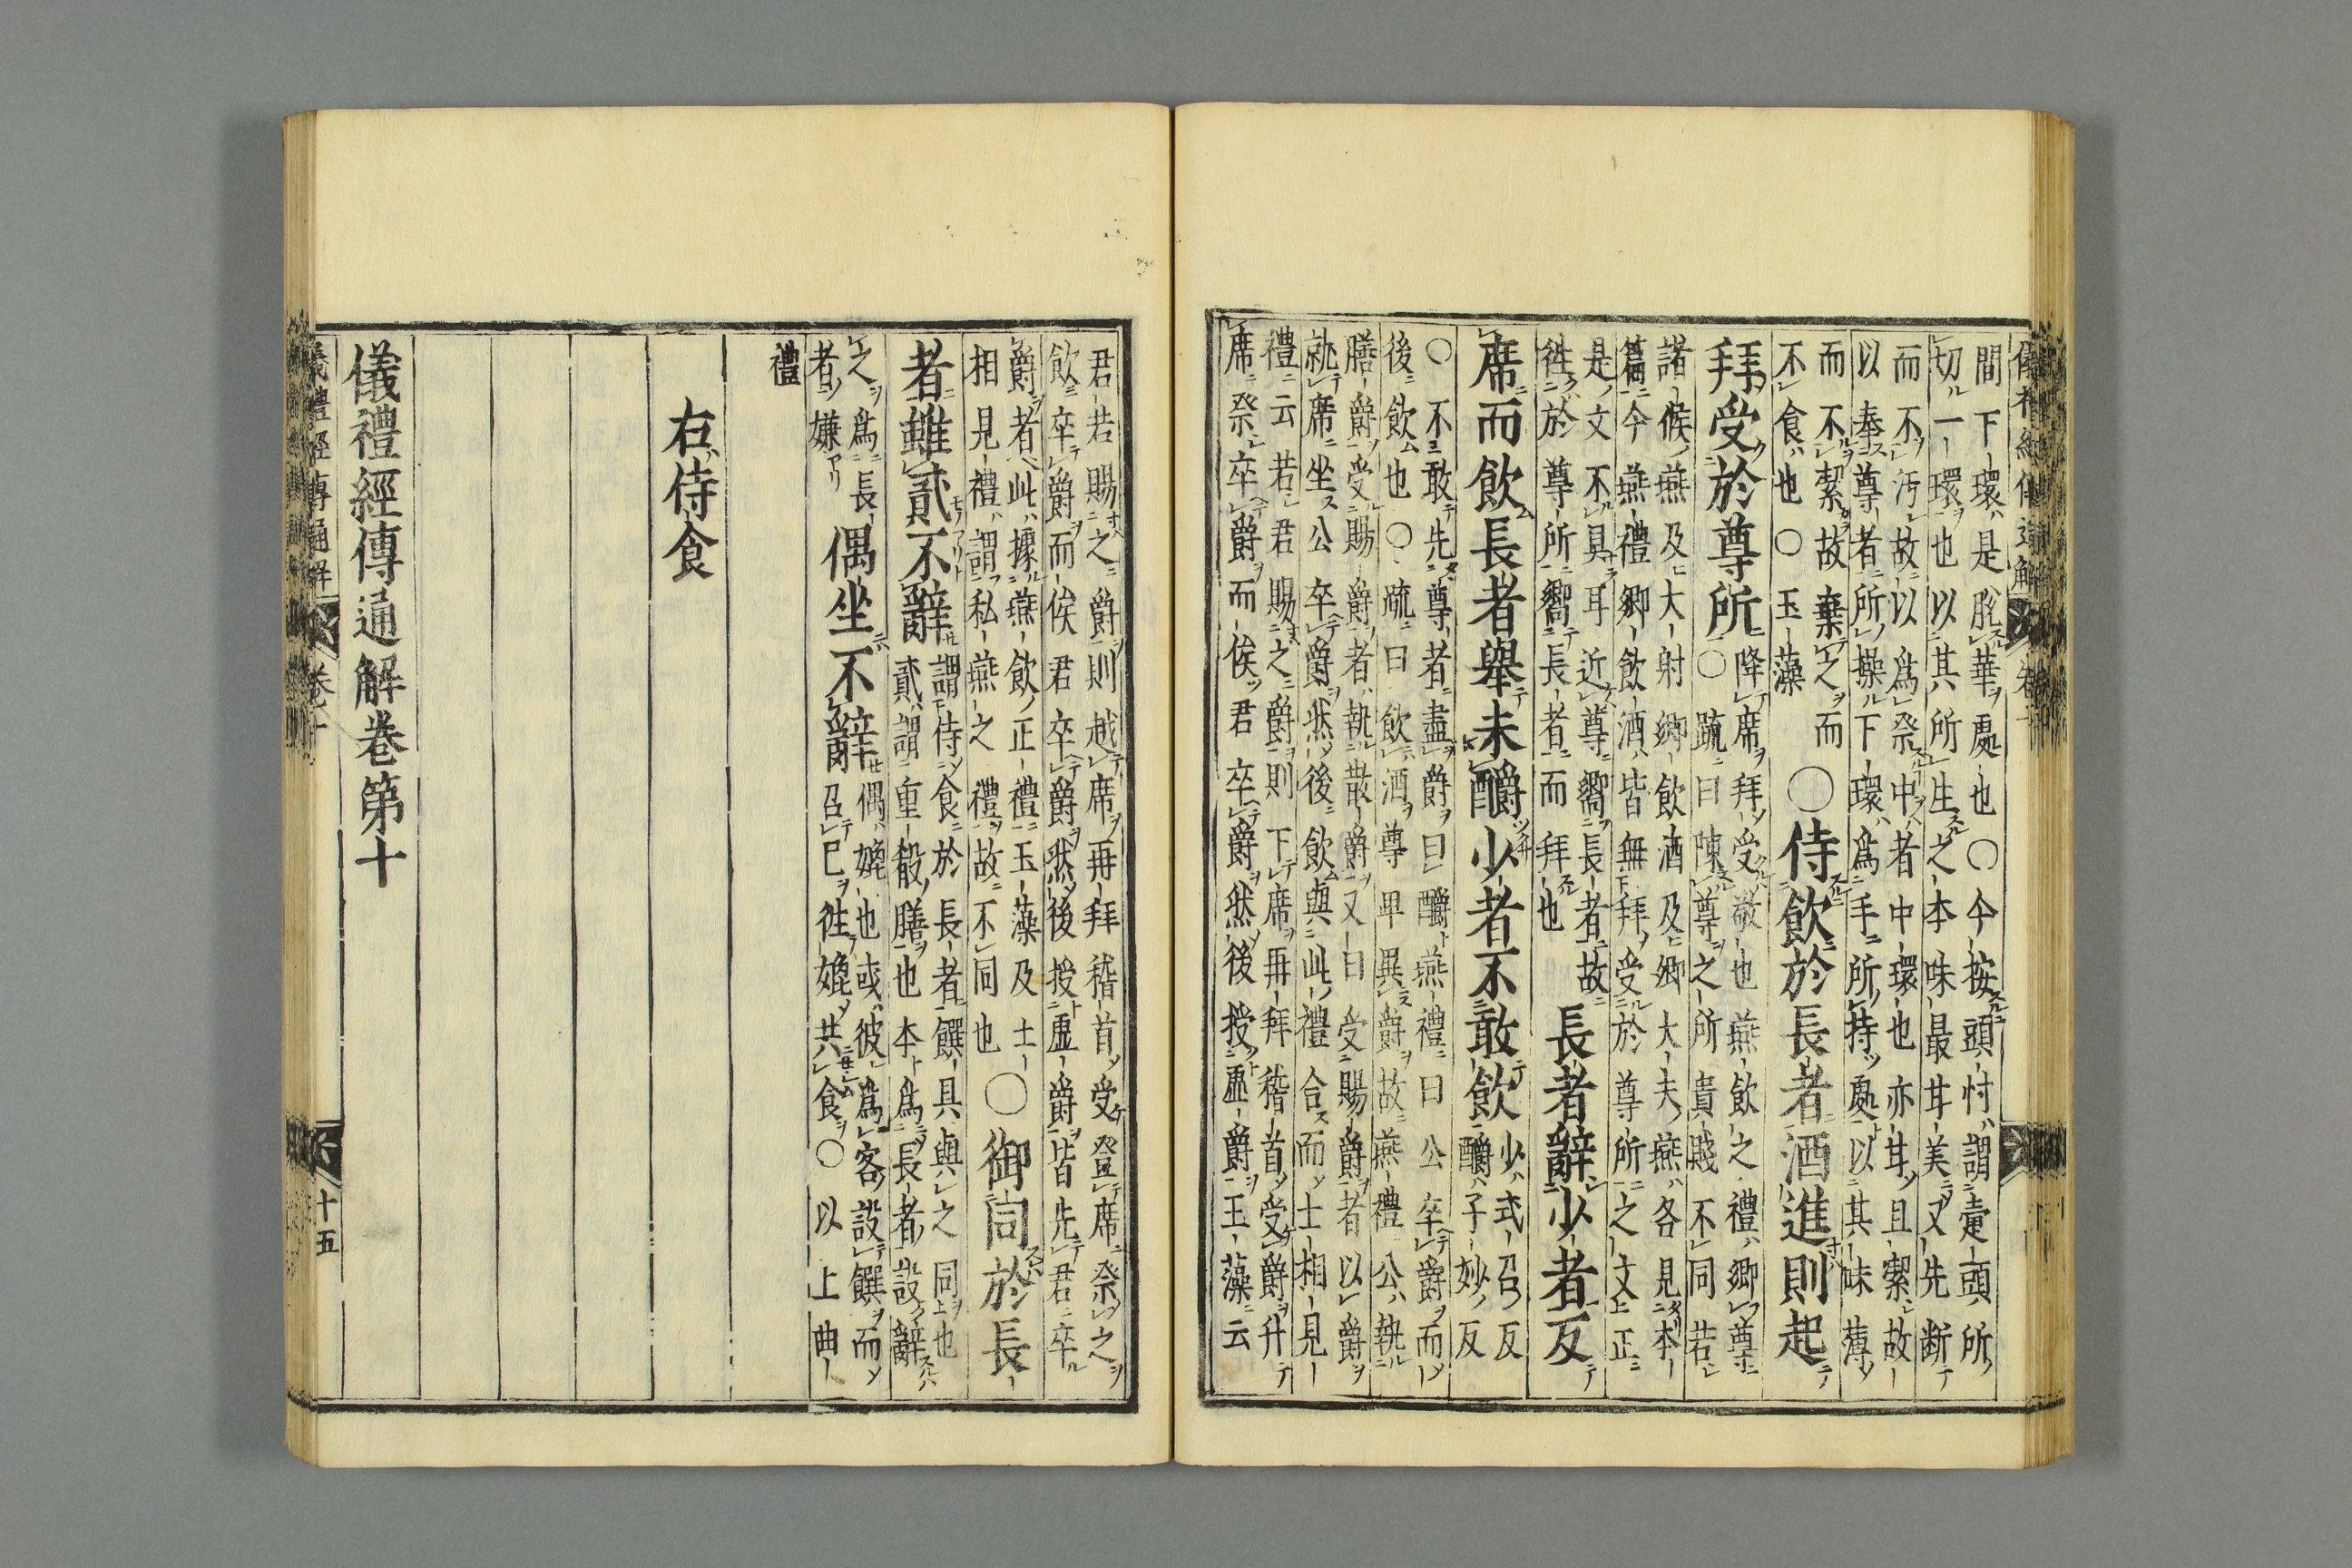 間下環是脫華處也〇今按頭忖謂疐頭所
切一環也以其所生之本味最甘美又先断
而不汚故以爲祭中者中環也亦甘且絜故
以奉尊者所操下環爲手所持處以其味薄
而不絜故棄之而
不食也〇玉藻
〇侍飲於長者酒進則起
拜受於尊所
降席拜受敬也燕飲之禮郷尊
〇䟽曰陳尊之所貴賤不同若
諸侯燕及大射郷飲酒及郷大夫燕各見本
篇今燕禮郷飲酒皆無拜受於尊所之文正
是文不具耳近尊嚮長者故
徃於尊所嚮長者而拜也
長者辭少者反
席而飲長者舉未釂少者不敢飲
少式召反
釂子妙反
〇不敢先尊者盡爵曰釂燕禮曰公卒爵而
後飲也〇䟽曰飲酒尊卑異爵故燕禮公執
膳爵受賜爵者執散爵又曰受賜爵者以爵
就席坐公卒爵然後飲與此禮合而士相見
禮云若君賜之爵則下席再拜稽首受爵升
席祭卒爵而俟君卒爵然後授虛爵玉藻云
君若賜之爵則越席再拜稽首受登席祭之
飲卒爵而俟君卒爵然後授虛爵皆先君卒
爵者此據燕飲正禮玉藻及士
相見禮謂私燕之禮故不同也
〇御同於長
者雖貳不辭
謂侍食於長者饌具與之同也
貳謂重殽膳也本爲長者設辭
之爲長
者嫌
偶坐不辭
偶媲也或彼爲客設饌而
召已徃媲共食〇以上曲
禮
右侍食
儀禮經傳通解卷第十
儀禮經傳通解
卷十
十五